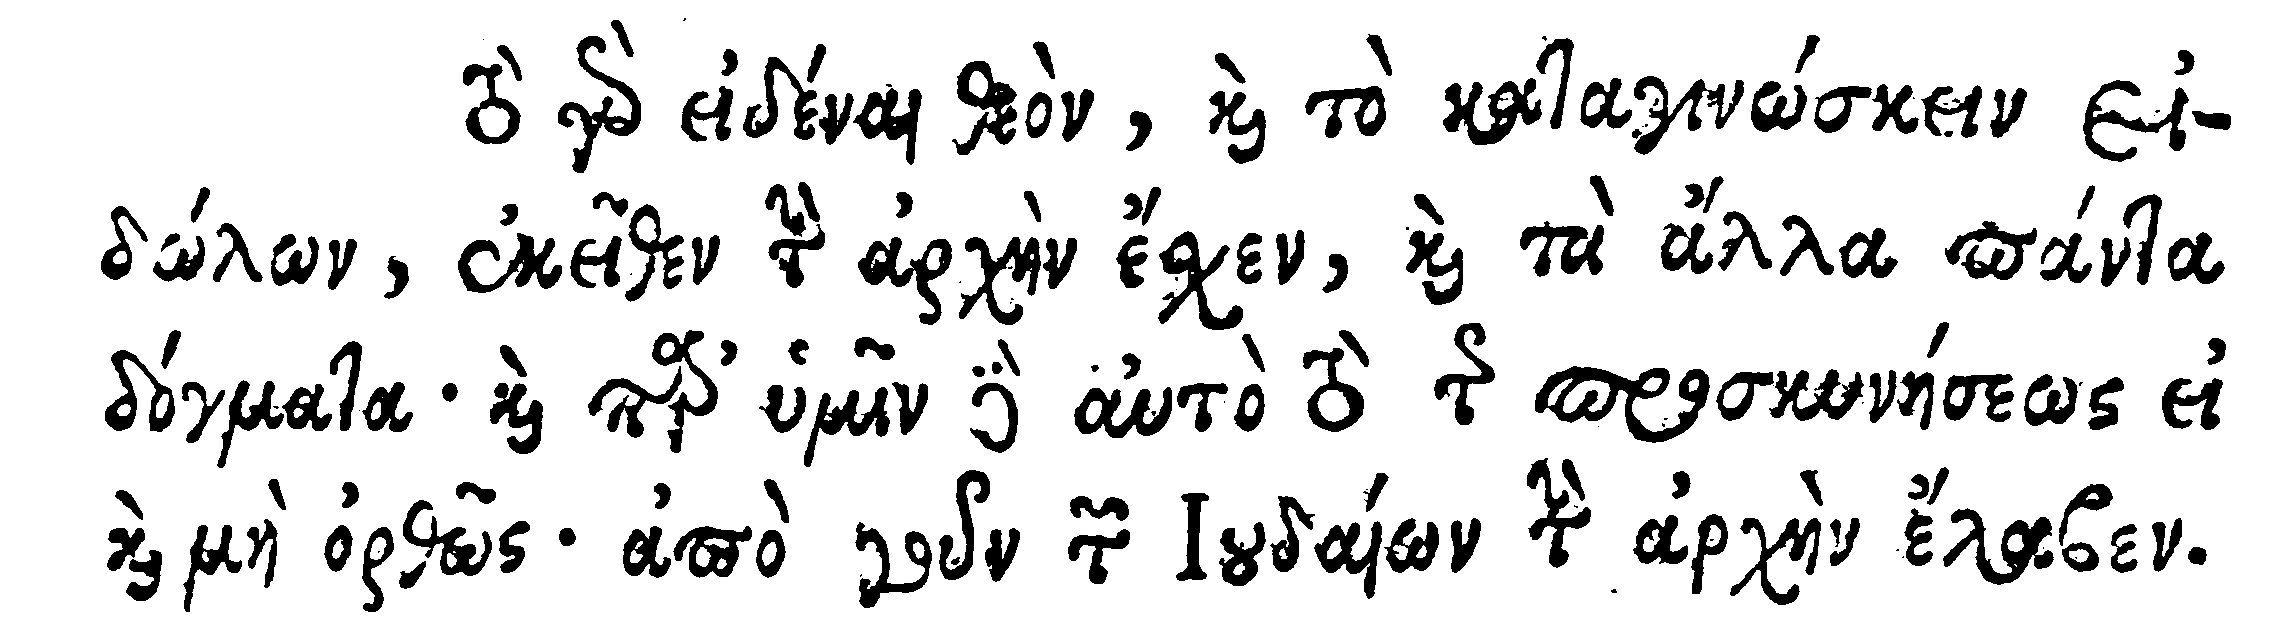 τὸ γὰρ εἰδέναι θεὸν, καὶ τὸ καταγινώσκειν εἰ-
δώλων, ἐκεῖθεν τὴν ἀρχὴν ἔσχεν, καὶ τὰ ἄλλα πάντα
δόγματα· καὶ παρ’ ὑμῖν δὲ αὐτὸ τὸ τῆς προσκυνήσεως εἰ
καὶ μὴ ὀρθῶς· ἀπὸ γοῦν τῶν Ιουδαίων τὴν ἀρχὴν ἔλαβεν.